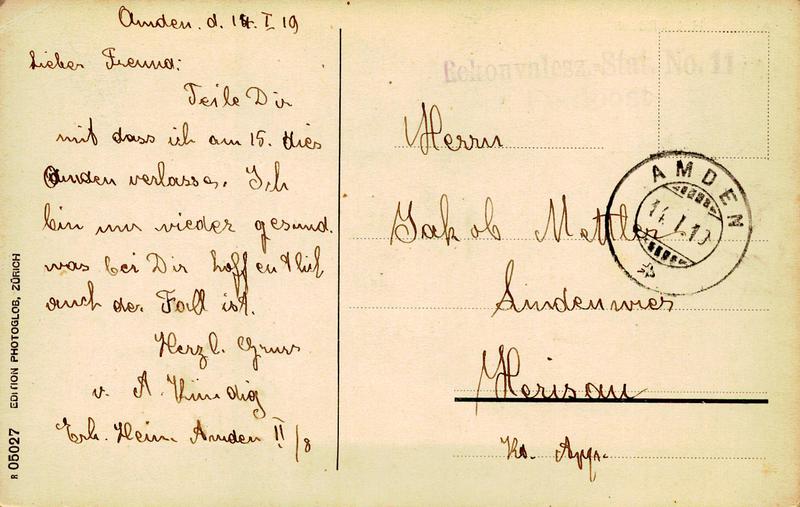 Amden. d. 14. I. 19
Lieber Freund:
Teile Dir
mit dass ich am 15. dies
Amden verlasse. Ich
bin nun wieder gesund.
was bei Dir hoffentlich
auch der Fall ist.
Herzl. Gruss
v. A. Kündig
Erh. Heim Amden II/8
EDITION PHOTOGLOB, ZÜRICH
R 05027
Rekonvalesz.-Stat. No. 11
AMDEN
14.I.19
Herrn
Jakob Mettler
Lindenwies
Herisau
Kt. App.